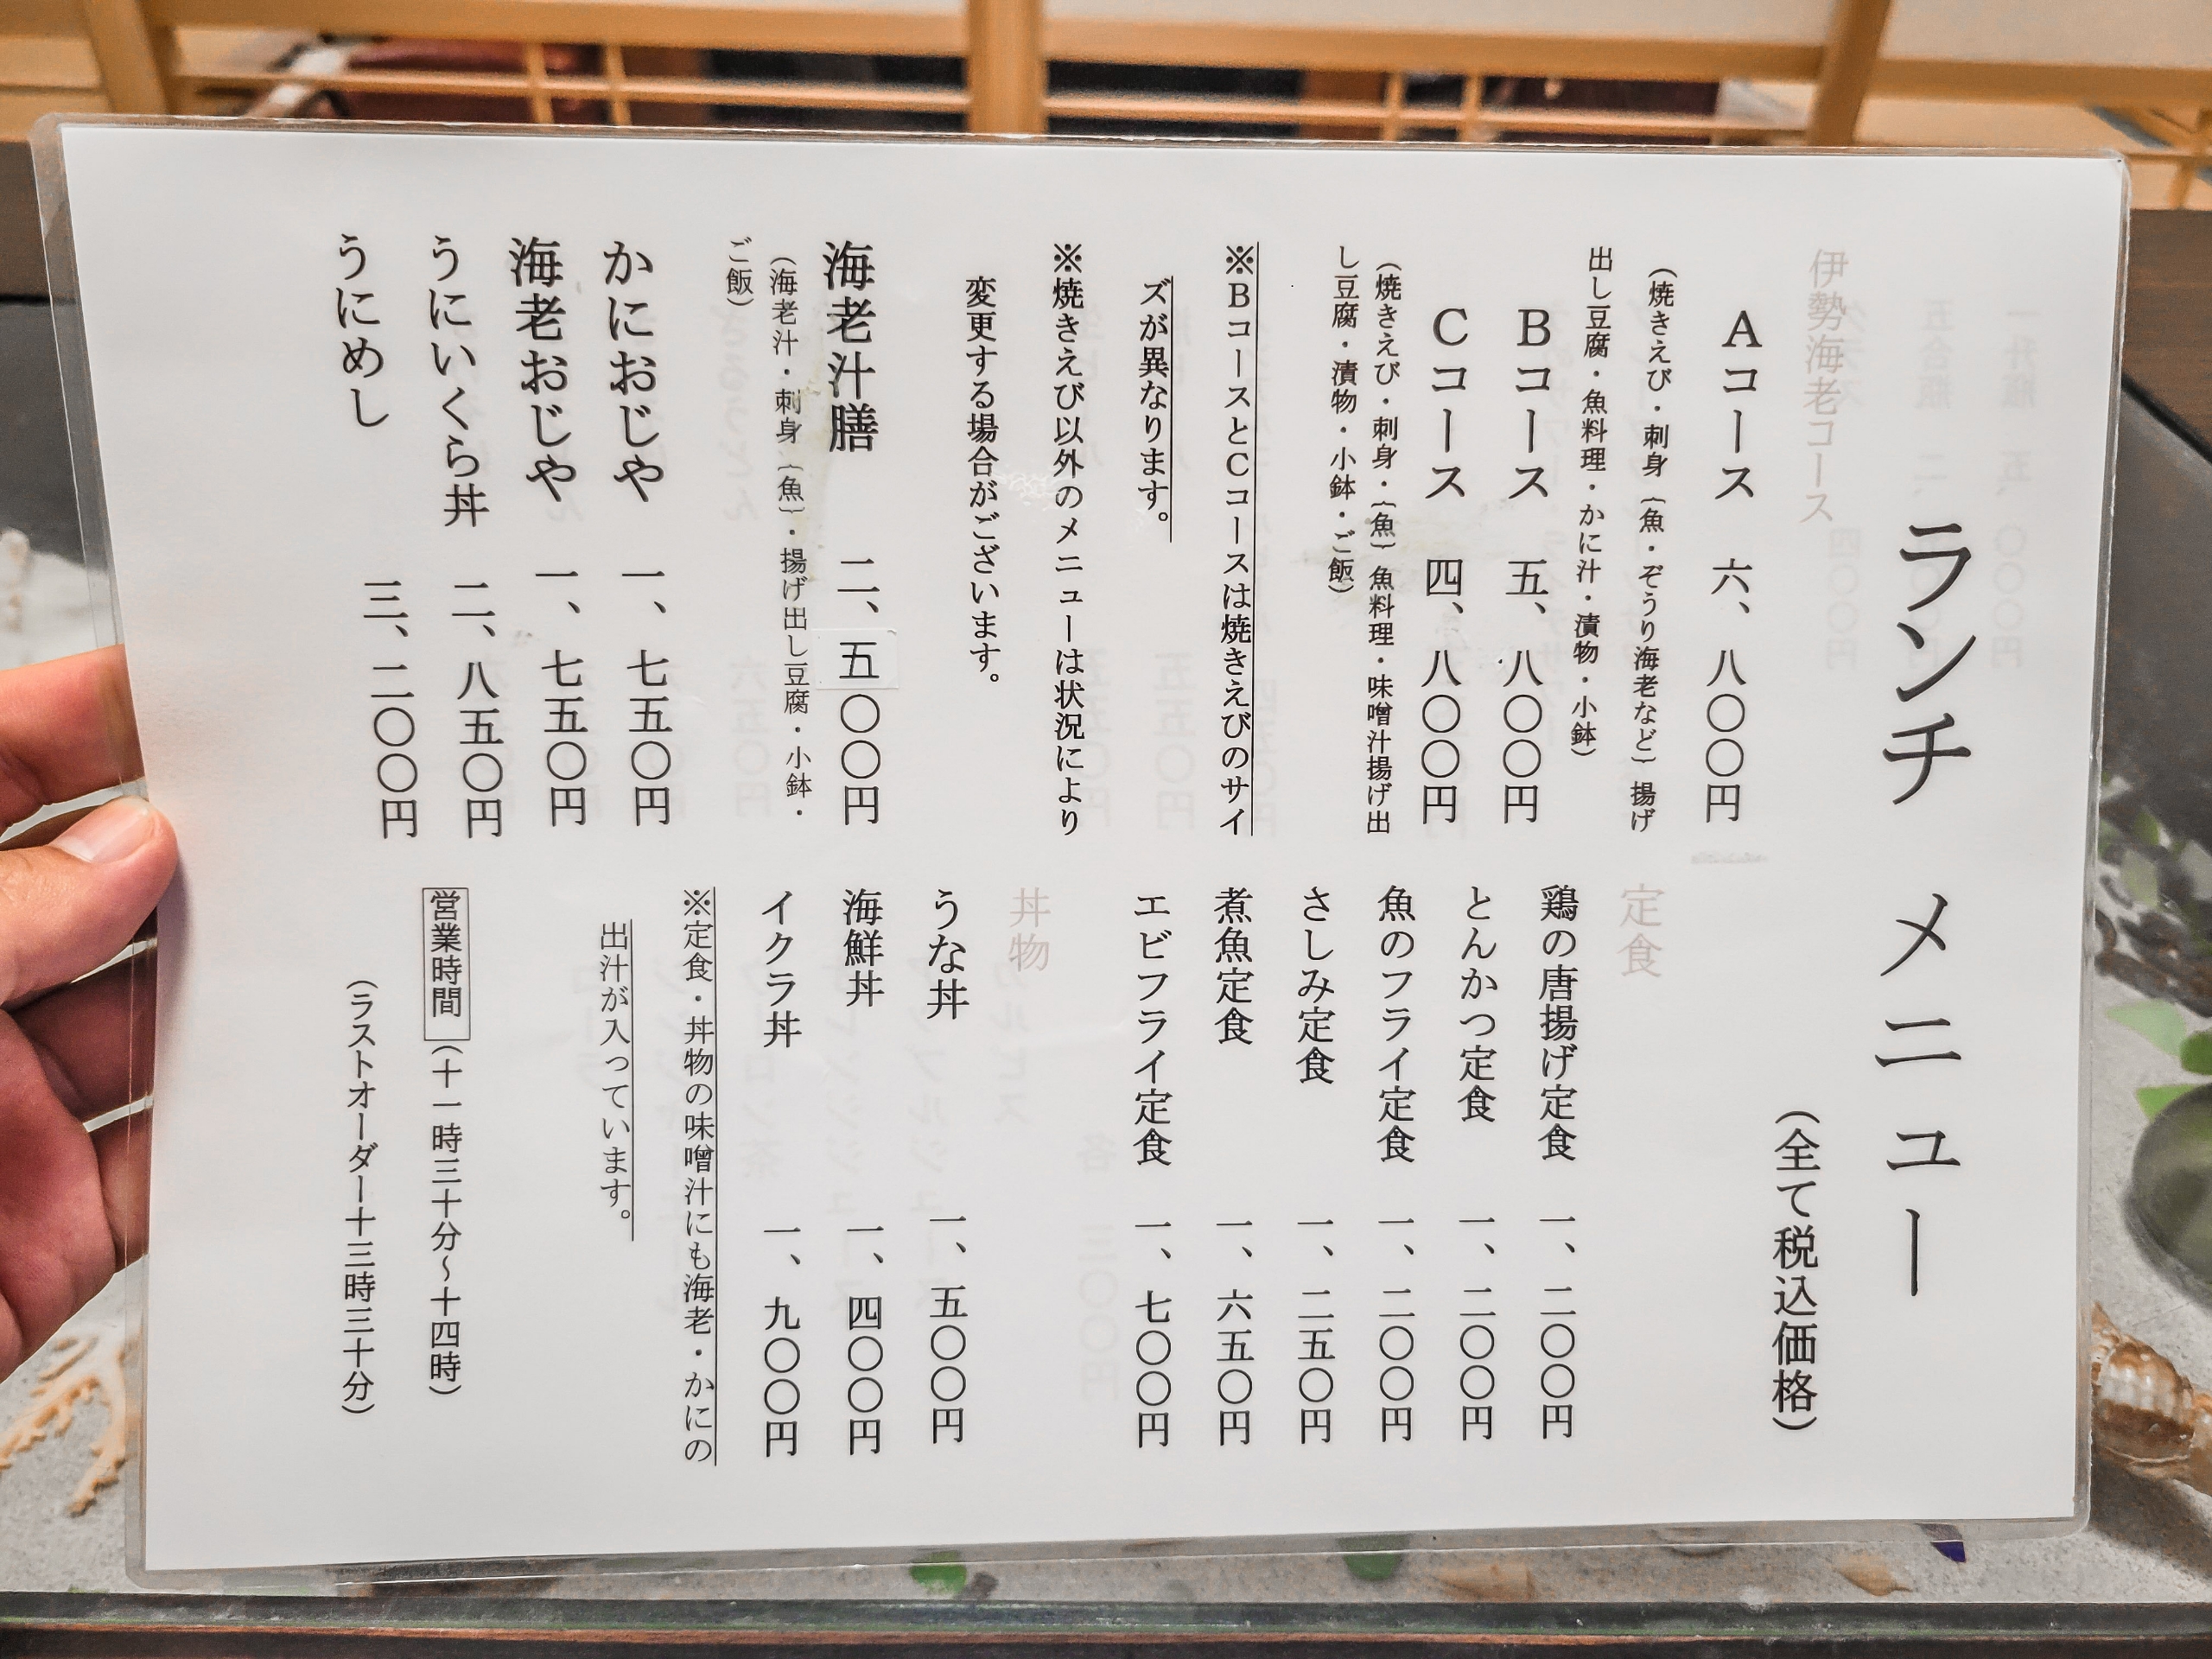 ランチ メニュー
（全て税込価格）
伊勢海老コース
Aコース 六、八〇〇円
（焼きえび・刺身｛魚・ぞうり海老など｝揚げ
出し豆腐・魚料理・かに汁・漬物・小鉢）
Bコース 五、八〇〇円
Cコース 四、八〇〇円
（焼きえび・刺身・｛魚｝魚料理・味噌汁揚げ出
し豆腐・漬物・小鉢・ご飯）
※BコースとCコースは焼きえびのサイ
ズが異なります。
※焼きえび以外のメニューは状況により
変更する場合がございます。
海老汁膳 二、五〇〇円
（海老汁・刺身｛魚｝・揚げ出し豆腐・小鉢・
ご飯）
かにおじや 一、七五〇円
海老おじや 一、七五〇円
うにいくら丼 二、八五〇円
うにめし 三、二〇〇円
定食
鶏の唐揚げ定食 一、二〇〇円
とんかつ定食 一、二〇〇円
魚のフライ定食 一、二〇〇円
さしみ定食 一、二五〇円
煮魚定食 一、六五〇円
エビフライ定食 一、七〇〇円
丼物
うな丼 一、五〇〇円
海鮮丼 一、四〇〇円
イクラ丼 一、九〇〇円
※定食・丼物の味噌汁にも海老・かにの
出汁が入っています。
営業時間（十一時三十分～十四時）
（ラストオーダー十三時三十分）